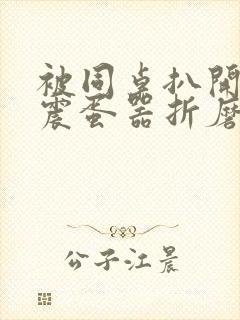 被同桌扒開
震蛋器折磨
公子江晨